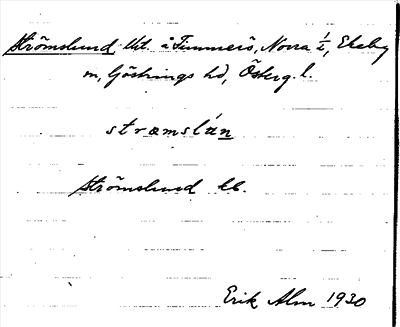 Strömslund, lht. å Timmerö, Norra ½, Ekeby
sn, Göstrings hd, Österg. l.
strœmslún
Strömslund kb.
Erik Alm 1930